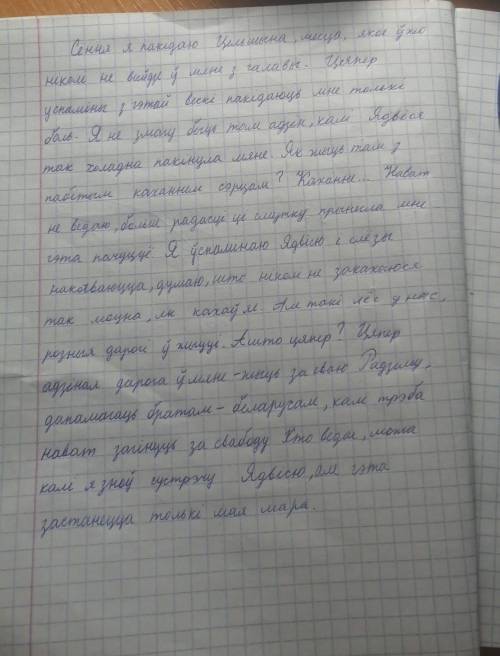 Сення я пакідаю Цельшына, месца, якое ўжо
ніколі не выйдзе ў мяне з галавы. Цяпер
успаміны з гэтай вескі пакідаюць мне толькі
боль. Я не змагу быць там адзін, калі Ядвіся
так холадна пакінула мяне. Як жыць там з
пабітым каханнем сэрцам? Каханне... Нават
не ведаю, больш радасці ці смутку прынесла мне
гэта пачуццё Я ўспамінаю Ядвісю і слёзы
накатваюцца, думаю, што ніколі не закахаюся
так моцна, як кахаў я. Але такі лёс у нас,
розныя дарогі ў жыцці. А што цяпер? Цяпер
адзіная дарога ў мяне - жыць за сваю Радзіму,
дапамагаць братам - беларусам, калі трэба
нават загінуць за свабоду Хто ведае, можа
калі я зноў сустрэчу Ядвісю, але гэта
застанецца толькі мая мара.